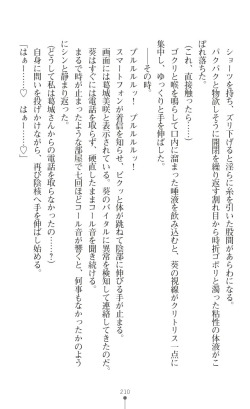 ショーツを持ち、ズリ下げると淫らに糸を引いた股間があらわになる。
パクパクと物欲しそうに開閉を繰り返す割れ目から時折ゴポリと濁った粘性の体液がこ
ぼれ落ちた。
（これ、直接触ったら……）
ゴクリと喉を鳴らして口内に溜まった唾液を飲み込むと、葵の視線がクリトリス一点に
集中し、ゆっくりと手を伸ばした。
――その時。
プルルルルッ！　プルルルルッ！
スマートフォンが着信を知らせ、ビクッと体が跳ねて陰部に伸びる手が止まる。
画面には葛城美咲と表示されている。葵のバイタルに異常を検知して連絡してきたのだ。
葵はすぐには電話を取らず、硬直したままコール音を聞き続ける。
まるで時が止まったような部屋で七回ほどコール音が響くと、何事もなかったかのよう
にシンと静まり返った。
（どうして私は葛城さんからの電話を取らなかったの……？）
自身に問いを投げかけながら、再び陰核へ手を伸ばし始める。
「はぁ……♡　はぁー……♡」
210